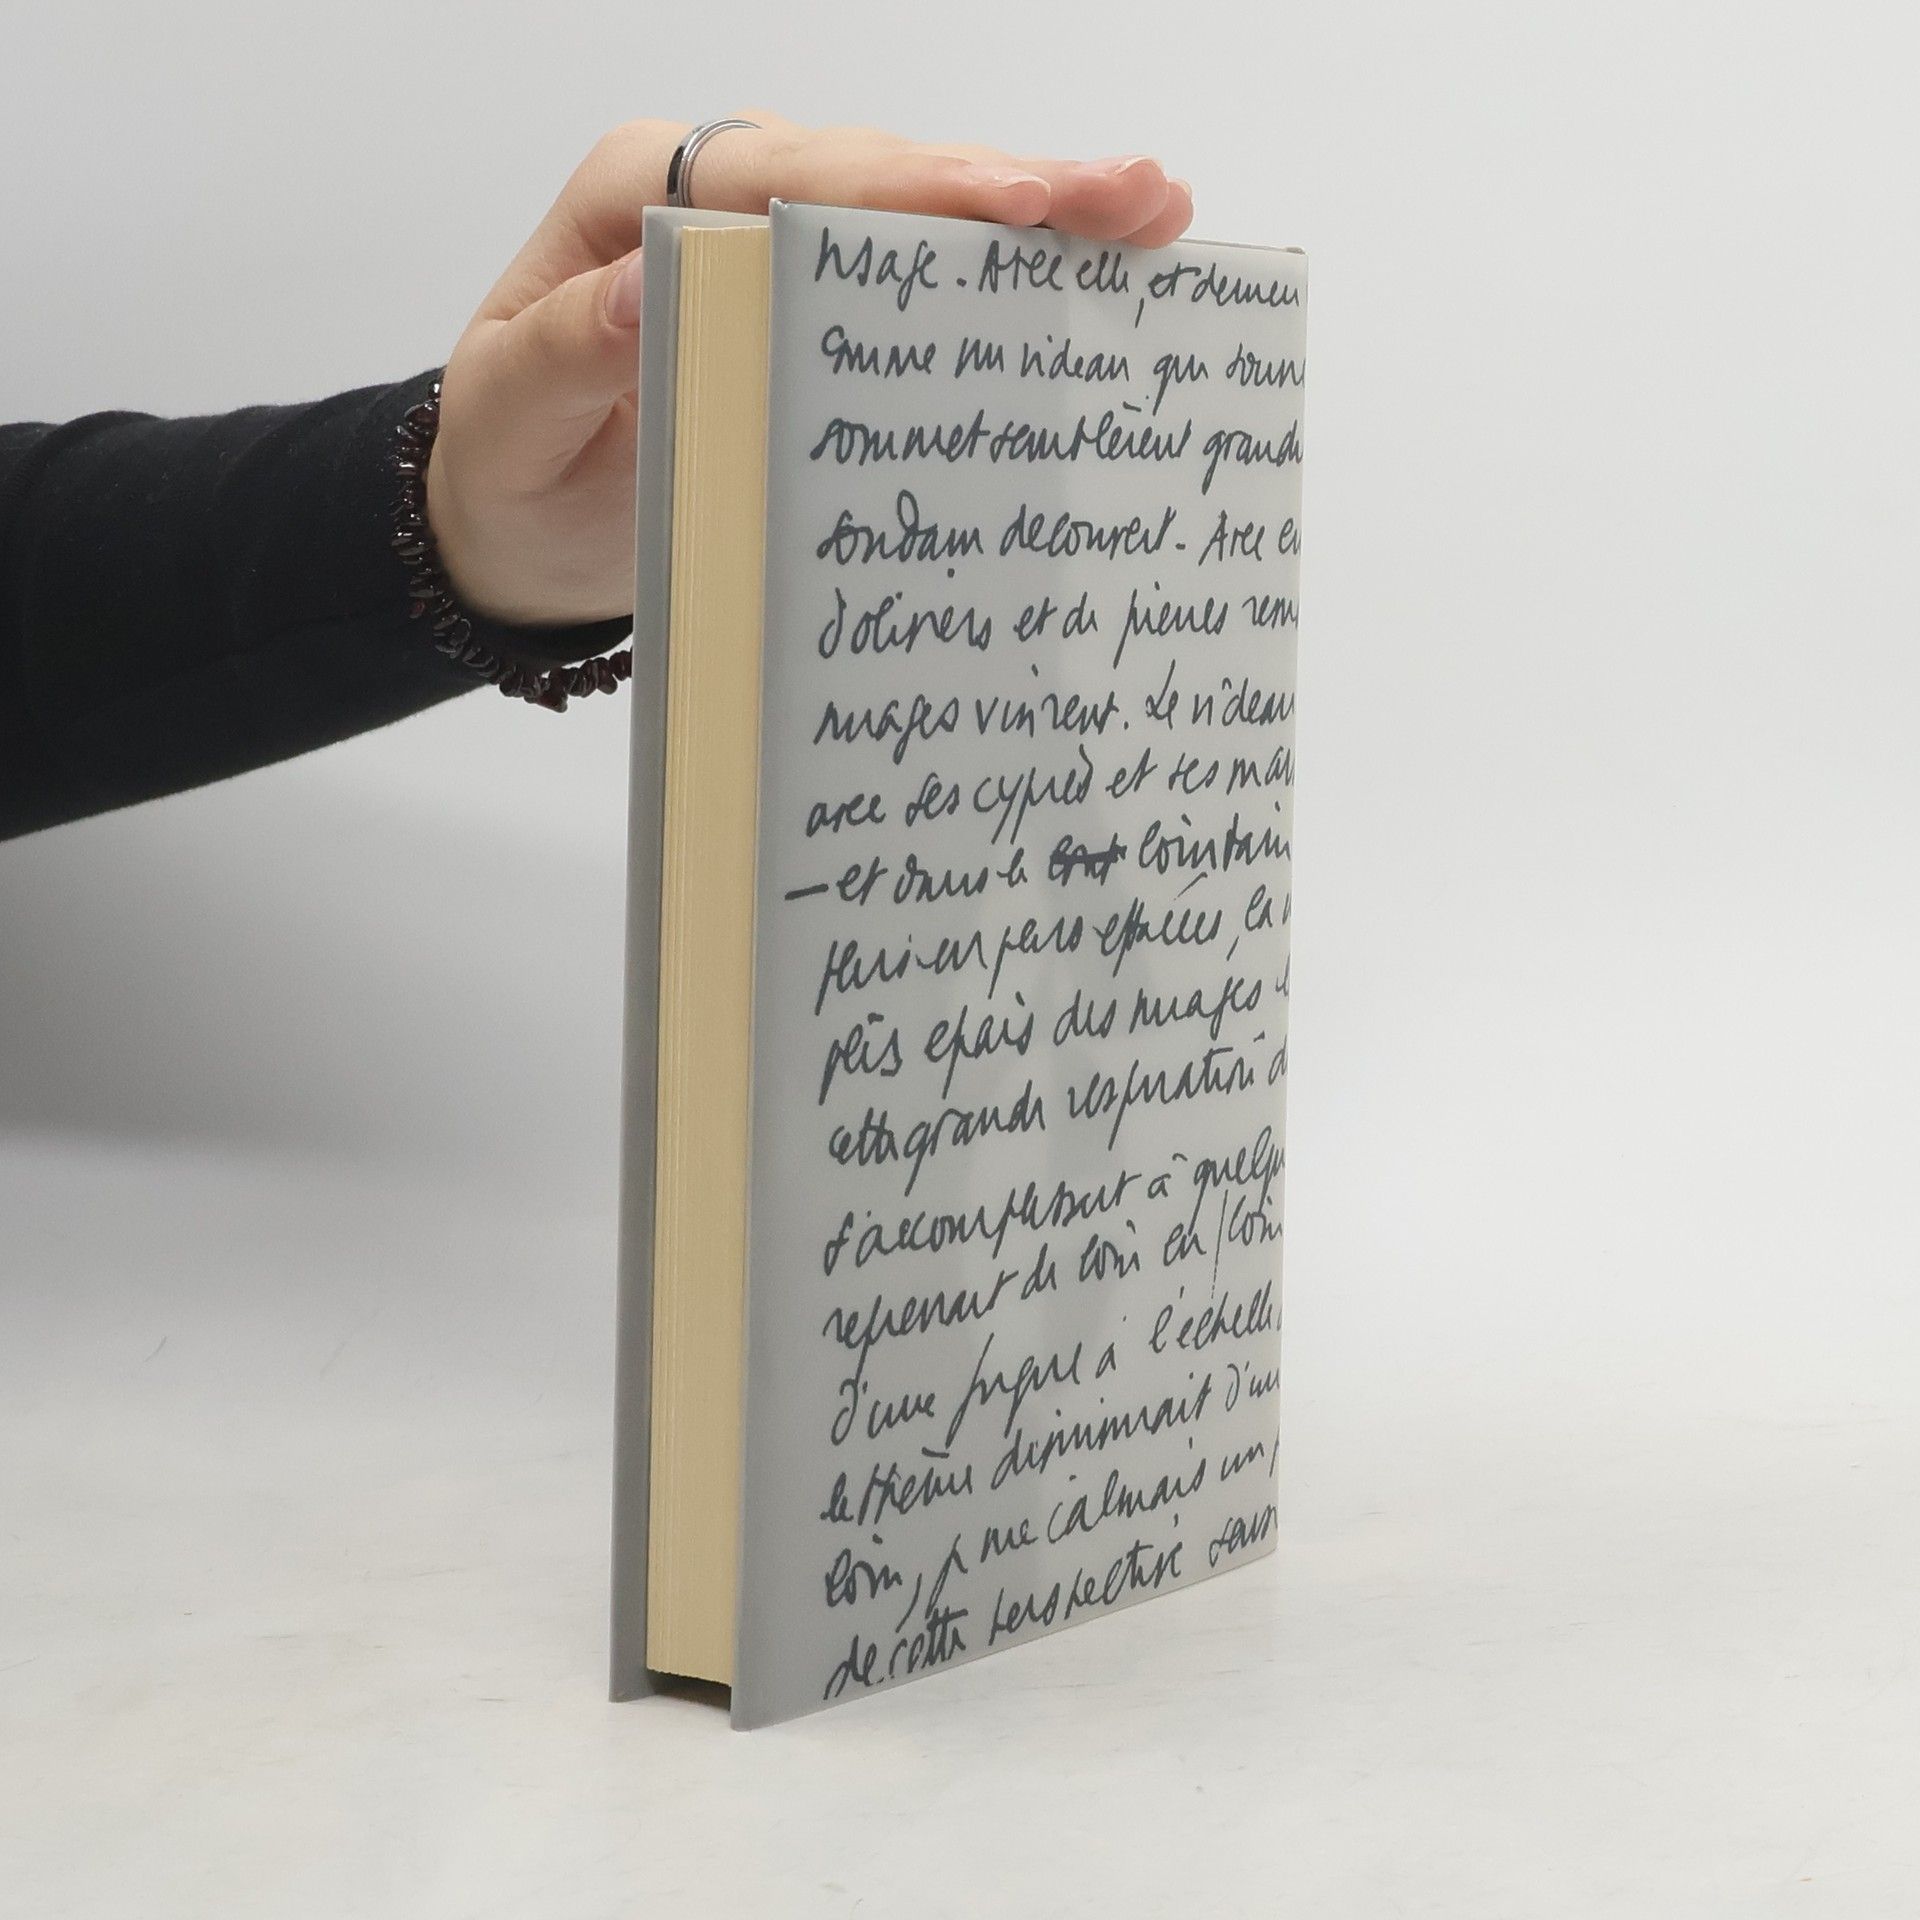 visage. Avec elle, et demeu
comme un rideau qui
sommet semblèrent grandi
soudain découvert. Avec eu
d'oliviers et de pierres
nuages vinrent. Le rideau
avec ses cyprès et ses
— et dans le lointain
plus en plus espacées, la
plis épais des nuages
cette grande respiration d
s'accomplissait à quelqu
reprenait de loin en loin
d'une fugue à l'échelle
le thème diminuait d'un
loin, je me calmais un p
de cette perspective sans